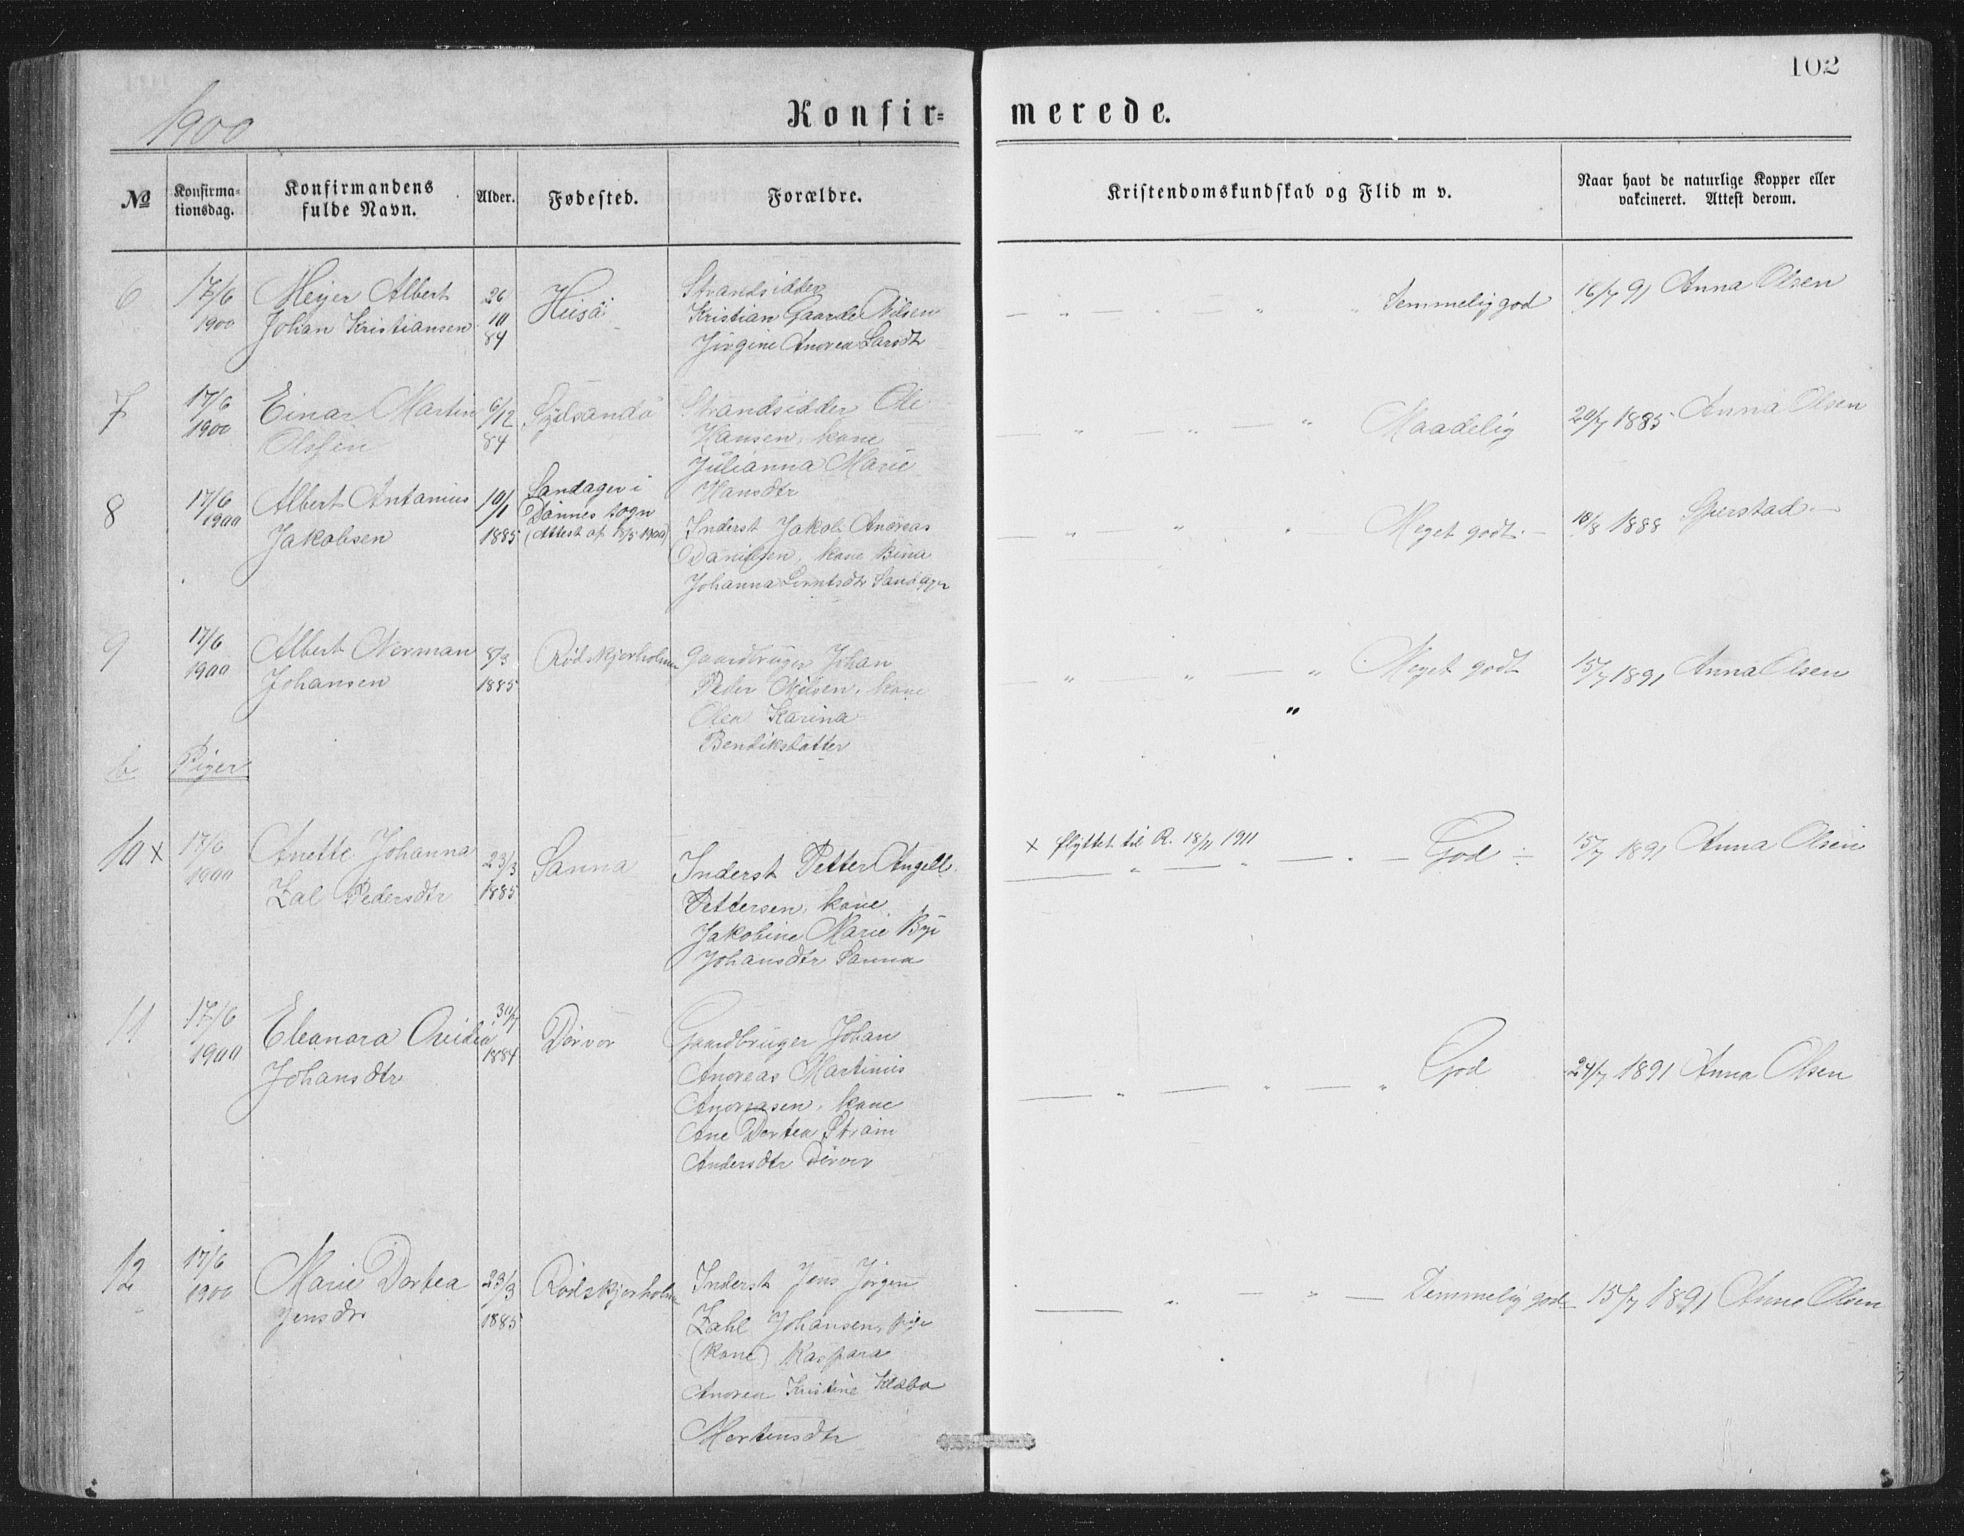 102
1900
Konfir=
merede.
No
Konfirma=
tionsdag.
Konfirmandens
fulde Navn.
Alder.
Fødested.
Forældre.
Kristendomskundskab og Flid m v.
Naar havt de naturlige Kopper eller
vakcineret. Attest derom.
6
17/6
1900
Meyer Albert
Johan Kristiansen
26
10
84
Husö
Strandsidder
Kristian Gaarde Nilsen
Jörgine Andrea Larsdtr
Temmelig god
16/7 91 Anna Olsen
7
17/6
1900
Einar Martin
Olsen
6/12
84
Sydsandö
Strandsidder Ole
Hansen, kone
Julianna Marie
Hansdtr
Maadelig
20/7 1885 Anna Olsen
8
17/6
1900
Albert Antanius
Jakobsen
10/1
1885
Sandager i
Dönnes sogn
(Attest af 18/5 1900)
Inderst Jakob Andreas
Danielsen, kone Bina
Johanna Berntsdtr Sandager
Meget godt
18/8 1888 Sperstad
9
17/6
1900
Albert Norman
Johansen
8/3
1885
Rødskjerholmen
Gaardbruger Johan
Peder Nilsen, kone
Olea Karina
Bendiksdatter
Meget godt
15/7 1891 Anna Olsen
b Piger
10 x
17/6
1900
Anette Johanna
Zal Pedersdtr
23/3
1885
Sanna
Inderst Petter Angell
Pettersen, kone
Jakobine Marie
Johansdtr Sanna
x flyttet til R. 18/11 1911
God
15/7 1891 Anna Olsen
11
17/6
1900
Eleanora Ovidia
Johansdtr
30/7
1884
Dörvær
Gaardbruger Johan
Andreas Martinus
Andreasen, kone
Ane Dortea Ström
Andersdtr Dörvær
God
24/7 1891 Anna Olsen
12
17/6
1900
Marie Dortea
Jensdtr
23/3
1885
Rødskjerholmen
Inderst Jens Jörgen
Zahl Johansen, pige
(kone) Kaspara
Andrea Kristine Klæbo
Mortensdtr
Temmelig god
15/7 1891 Anna Olsen